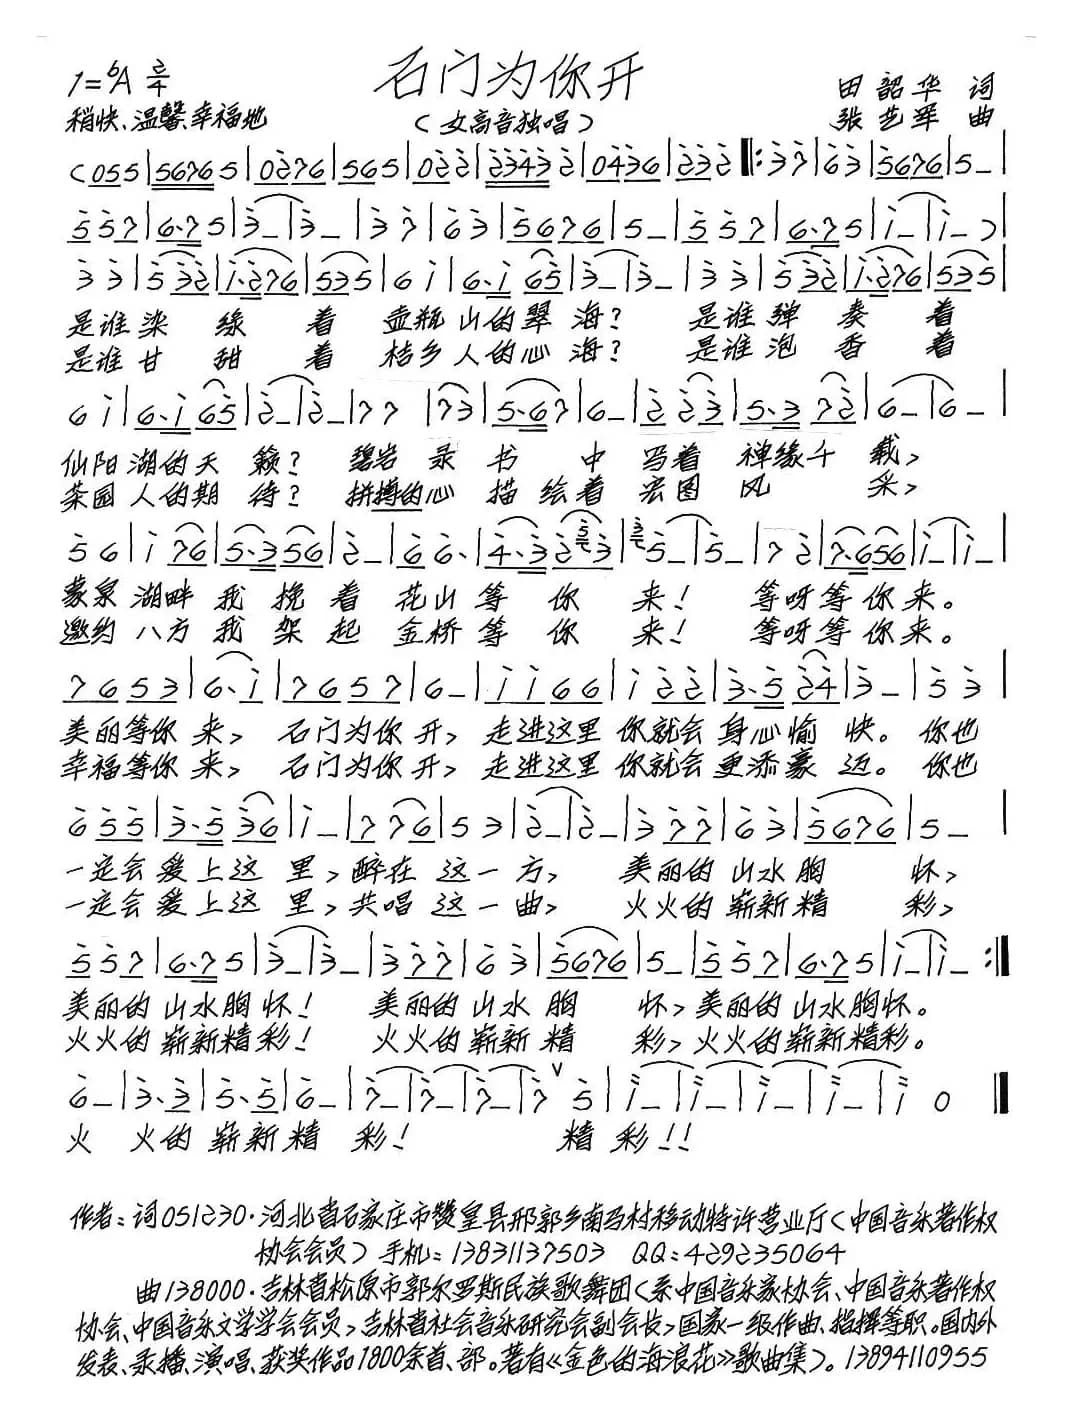 石门为你开
1=♭A 2/4
田韶华 词
稍快、温馨、幸福地
(女高音独唱)
张艺军 曲
(055|56765|0276|565|022|23432|0436|232‖:37|63|5676|5_|
557|6·75|3_|3_|37|63|5676|5_|557|6·75|i_|i_)|
33|532|i·276|535|6i|6·i65|3_|3_|33|532|i·276|535|
是谁染绿着 壶瓶山的翠海？ 是谁弹奏着
是谁甘甜着 桔乡人的心海？ 是谁泡香着
6i|6·i65|2_|2_|77|73|5·67|6_|223|5·372|6_|6_|
仙阳湖的天籁？ 碧岩录书中写着禅缘千载,
茶园人的期待？ 拼搏的心描绘着宏图风采,
56|i76|5·356|2_|66·|4·323|5_|5_|72|7·656|i_|i_|
蒙泉湖畔我挽着花山等你来！ 等呀等你来。
邀约八方我架起金桥等你来！ 等呀等你来。
7653|6·i|7657|6_|ii66|i22|3·524|3_|53|
美丽等你来, 石门为你开, 走进这里你就会身心愉快。你也
幸福等你来, 石门为你开, 走进这里你就会更添豪迈。你也
655|3·536|i_|776|53|2_|2_|377|63|5676|5_|
一定会爱上这里, 醉在这一方, 美丽的山水胸怀,
一定会爱上这里, 共唱这一曲, 火火的崭新精彩,
557|6·75|3_|3_|377|63|5676|5_|557|6·75|i_|i_:‖
美丽的山水胸怀！ 美丽的山水胸怀, 美丽的山水胸怀。
火火的崭新精彩！ 火火的崭新精彩, 火火的崭新精彩。
6_|3·3|5·5|6_|7_|7_|7_|7∨5|i_|i_|i_|i_|i0‖
火火的崭新精彩！ 精彩！！
作者：词051230·河北省石家庄市赞皇县邢郭乡南马村移动特许营业厅(中国音乐著作权
协会会员) 手机：13831137503 QQ：429235064
曲138000·吉林省松原市郭尔罗斯民族歌舞团(系中国音乐家协会、中国音乐著作权
协会、中国音乐文学学会会员,吉林省社会音乐研究会副会长,国家一级作曲、指挥等职。国内外
发表、录播、演唱、获奖作品1800余首、部。著有《金色的海浪花》歌曲集)。13894110955